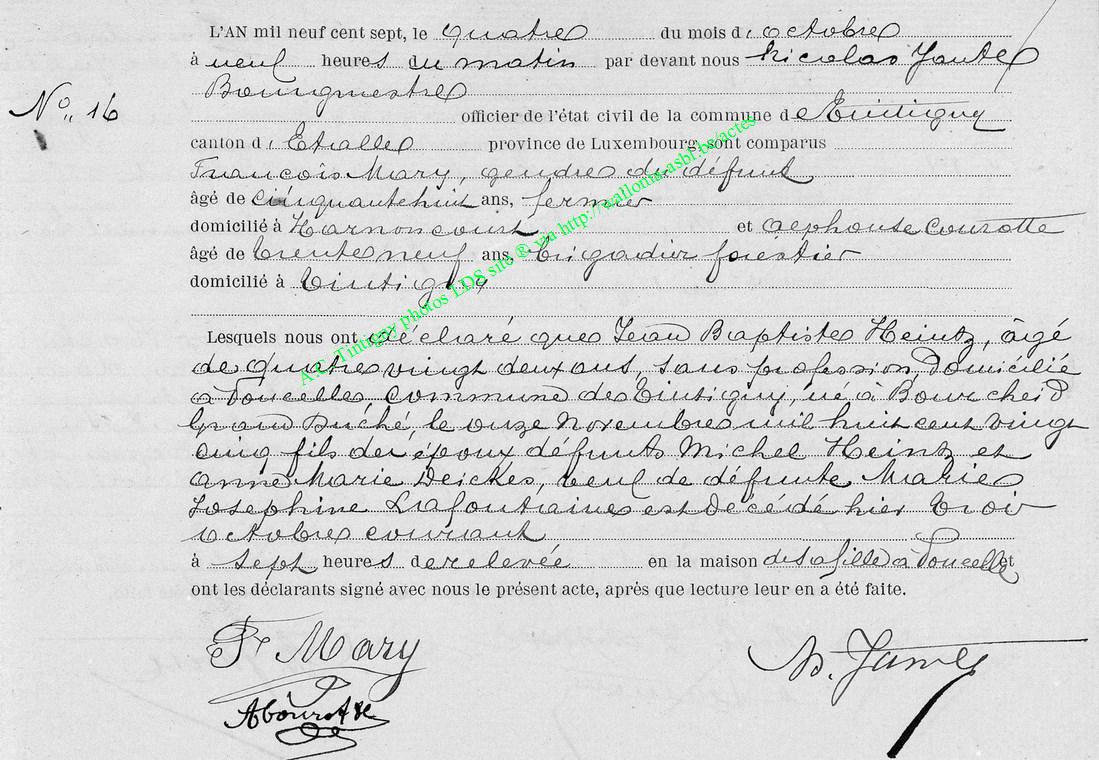 L'AN mil neuf cent sept, le quatre du mois d' octobre
à neuf heures du matin par devant nous Nicolas
Bourgmestre
No. 16
officier de l'état civil de la commune de Tintigny
canton d' Etalle province de Luxembourg, sont comparus
François Mary, gendre du défunt
âgé de cinquantehuit ans, fermier
domicilié à Harnoncourt et Alphonse Courotte
âgé de trenteneuf ans, brigadier forestier
domicilié à Tintigny
Lesquels nous ont déclaré que Jean Baptiste Heintz, âgé
de quatrevingt deux ans, sans profession, domicilié
à Poncelle, commune de Tintigny, né à Bourscheid
Grand Duché, le onze Novembre mil huit cent vingt
cinq fils des époux défunts Michel Heintz et
Anne Marie Deickes, veuf de défunte Marie
Josephine Lafontaine est décédé hier trois
octobre courant
à sept heures de relevée en la maison de sa fille à Poncelle et
ont les déclarants signé avec nous le présent acte, après que lecture leur en a été faite.
Fr Mary
N.
A Courotte
A.C. Tintigny photos LDS site ® via http://wallonia-asbl.be/actes